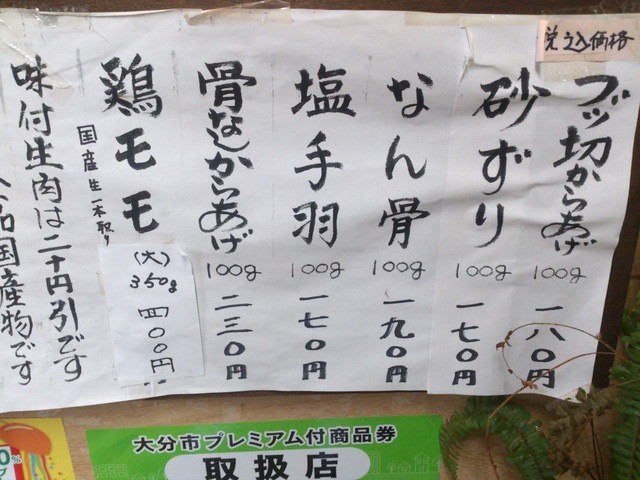 税込価格
ブツ切からあげ
100g
一八〇円
砂ずり
100g
一七〇円
なん骨
100g
一九〇円
塩手羽
100g
一七〇円
骨なしからあげ
100g
二三〇円
鶏モモ
国産生一本取り
(大)
350g
四〇〇円
味付生肉は二十円引です
国産物です
大分市プレミアム付商品券
取扱店